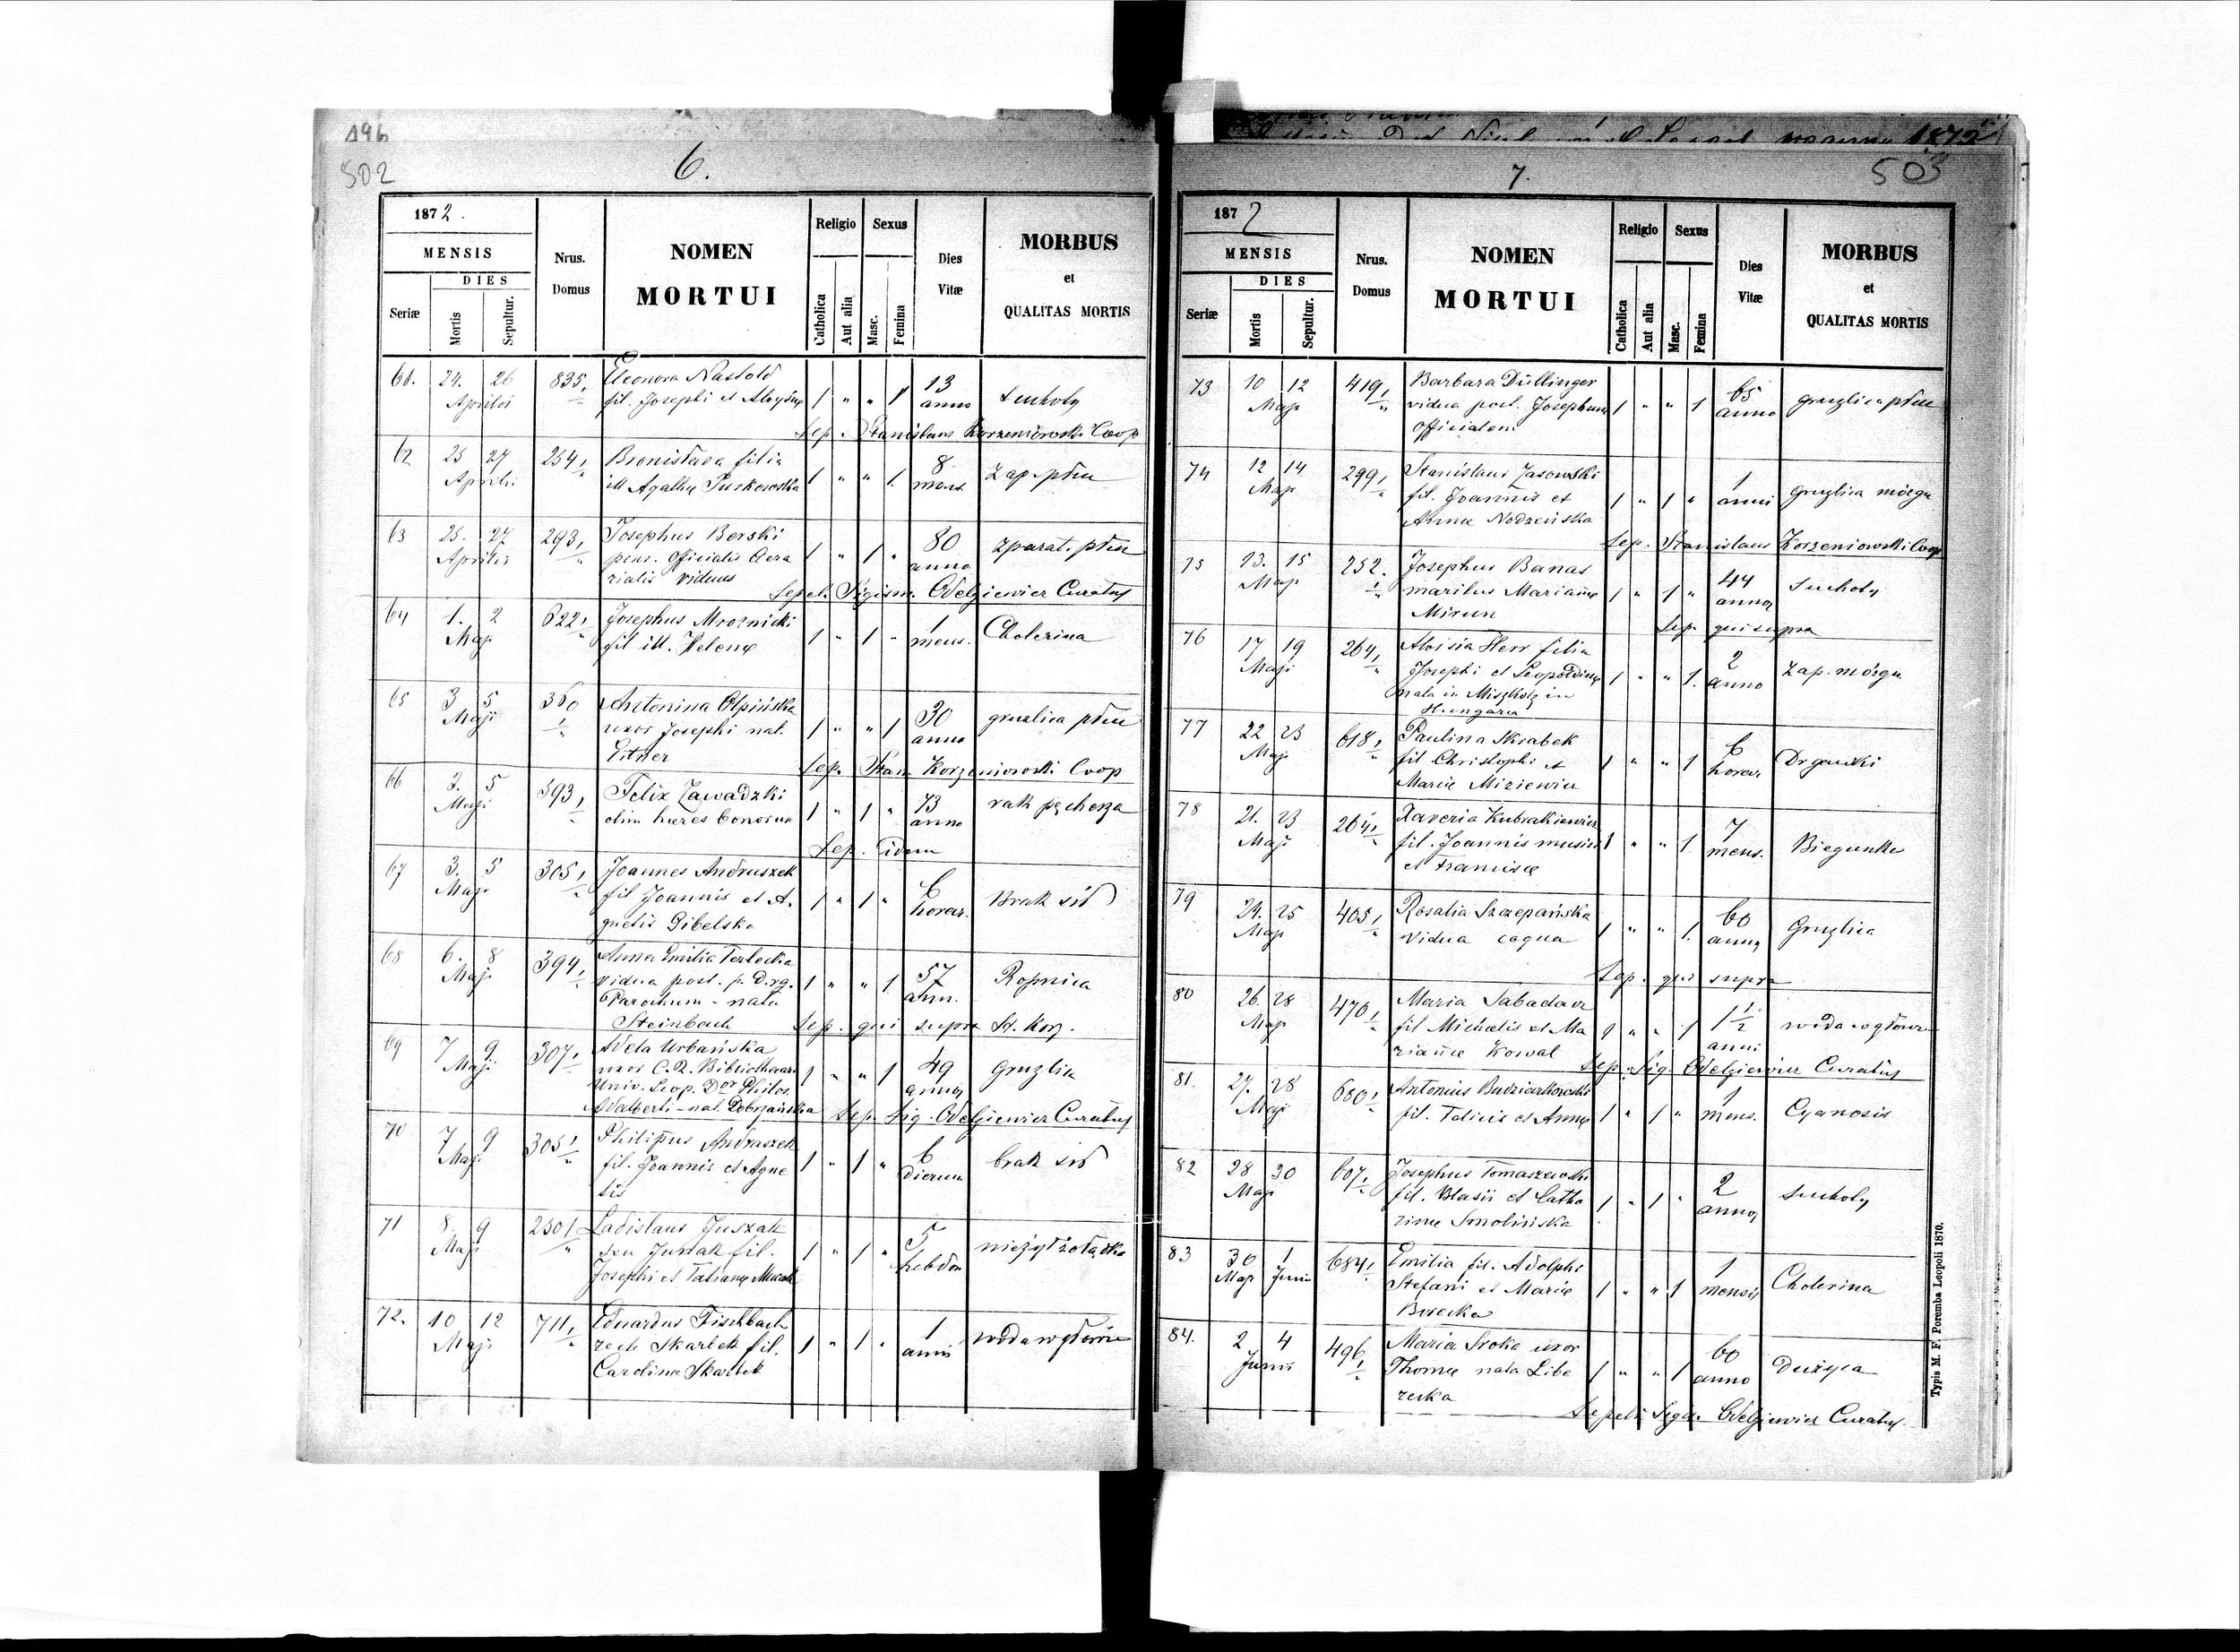 196
502
6.
1872.
MENSIS
DIES
Seriæ
Mortis
Sepultur.
Nrus. Domus
NOMEN MORTUI
Religio
Catholica
Aut alia
Sexus
Masc.
Femina
Dies Vitæ
MORBUS et QUALITAS MORTIS
61. 24. 26 835 Eleonora 13 Suchoty
Aprilis fil. Josephi et Aloysiæ 1 " " 1 anno
Sep. Stanislaus Korzeniowski Coop
62 25 27 254 Bronisława filia 8 Zap. płuc
Aprilis ill Agathæ 1 " " 1. mens
63 25. 27 293 Josephus Berski 80 zparal. płuc
Aprilis pens. Officialis Aera 1 " 1 " anno
rialis viduus
Sepel. Sigism. Odelgiewicz Curatus
64 1. 2 622 Josephus Mroznicki 1 Cholerina
Maji fil ill. Helenæ 1 " 1 " mens.
65 3 5 360 Antonina Olpińska 30 gruzlica płuc
Maji uxor Josephi nat. 1 " " 1 anno
Eitner
Sep. Stan Korzeniowski Coop
66 3. 5 593 Felix Zawadzki 73 rak pęcherza
Maji olim hæres bonorum 1 " 1 " anno
Sep. idem
67 3. 5 305 Joannes Andruszek 6 Brak sił
Maji fil Joannis et A. 1 " 1 " horar.
gnetis Gibelska
68 6. 8 394 Anna Emilia Terlecka 57 Ropnica
Maji vidua post. p. D. rg. 1 " " 1 ann.
Parochum - nata
Steinbach
Sep. qui supra St. Korz.
69 7 9 307 Adela Urbańska 49 Gruzlica
Maji uxor C. R. Bibliothecar. 1 " " 1 annor
Univ. Leop. Dor Philos.
Adalberti - nat. Dobrzańska Sep. Sig. Odelgiewicz Curatus
70 7 9 305 Philipus Andraszek 6 brak sił
Maji fil. Joannis et Agne 1 " 1 " dierum
tis
71 8. 9 250 Ladislaus Juszak 5 nieżyt żołądka
Maji seu Junak fil. 1 " 1 " hebdom
Josephi et Tatianæ
72. 10 12 711 Eduardus Fischbach 1 woda w głowie
Maji recte Skarbek fil. 1 " 1 " anni
Carolinæ Skarbek
1872
503
7.
1872
MENSIS
DIES
Seriæ
Mortis
Sepultur.
Nrus. Domus
NOMEN MORTUI
Religio
Catholica
Aut alia
Sexus
Masc.
Femina
Dies Vitæ
MORBUS et QUALITAS MORTIS
73 10 12 419 Barbara Düllinger 65 gruzlica płuc
Maji vidua post. Josephum 1 " " 1 anno
Officialem
74 12 14 299 Stanislaus Jasowski 1 Gruzlica mózgu
Maji fil. Joannis et 1 " 1 " anni
Annæ Nodzeńska
Sep. Stanislaus Korzeniowski Coop
75 13. 15 252. Josephus Banas 44 Suchoty
Maji maritus Mariannæ 1 " 1 " annor
Mirun
Sep. qui supra
76 17 19 264 Aloisia Herr filia 2 Zap. mózgu
Maji Josephi et Leopoldinæ 1 " " 1. anno
nata in Miszkolz in
Hungaria
77 22 23 618 Paulina Skrabek 6 Drgawki
Maji fil Christophi et 1 " " 1 horar.
Mariæ
78 21. 23 264 Xaveria Kubrakiewicz 7 Biegunka
Maji fil. Joannis musici 1 " " 1 mens.
et Franciscæ
79 24. 25 405 Rosalia Szczepańska 60 Gruzlica
Maji vidua coqua 1 " " 1. annor
Sep. qui supra
80 26. 28 470 Maria 1 1/2 woda w głowie
Maji fil Michælis et Ma 1 " " 1 anni
riannæ Kowal
Sep. Sig. Odelgiewicz Curatus
81. 27. 28 680 Antonius 1 Cyanosis
Maji fil. Felicis et Annæ 1 " 1 " mens.
82 28 30 607 Josephus Tomaszewski 2 Suchoty
Maji fil. Blasii et Catha 1 " 1 " annor
rinæ Smolińska
83 30 1 684 Emilia fil. Adolphi 1 Cholerina
Maji Junii Stefani et Mariæ 1 " " 1 mensis
84. 2 4 496 Maria Sroka uxor 60 Dużyca
Junii Thomæ nata Libe 1 " " 1 anno
recka
Sepeli Sigis. Odelgiewicz Curatus.
Typis M. F. Poremba Leopoli 1870.